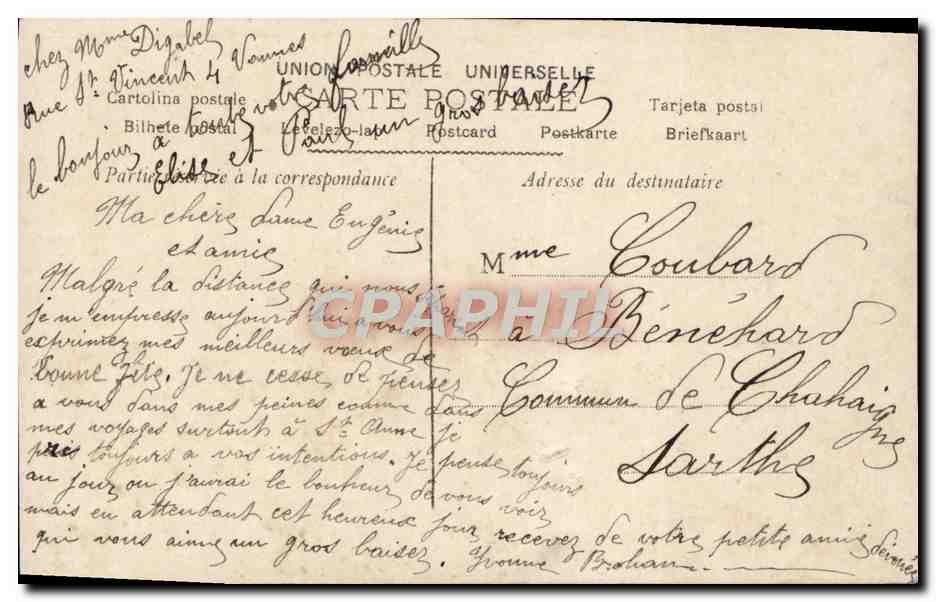 chez Mme Digabel
Rue St Vincent 4 Vannes
le bonjour à toute votre famille
Elise et Paul un gros baiser
UNION POSTALE UNIVERSELLE
CARTE POSTALE
Cartolina postale
Tarjeta postal
Bilhete postal
Levelezo-lap
Postcard
Postkarte
Briefkaart
Partie réservée à la correspondance
Adresse du destinataire
Ma chère dame Eugénie
et amie
Malgré la distance qui nous
je m'empresse aujourd'hui a vous
exprimez mes meilleurs vœux de
bonne fête. Je ne cesse de penser
a vous dans mes peines comme dans
mes voyages surtout à Ste Anne je
pris toujours a vos intentions. Je pense toujours
au jour ou j'aurai le bonheur de vous voir
mais en attendant cet heureux jour recevez de votre petite amie dévouée
qui vous aime un gros baiser. Yvonne Brohan
CPAPHIL
Mme Coubard
à Bénéhard
Commun de Chahaigne
Sarthe